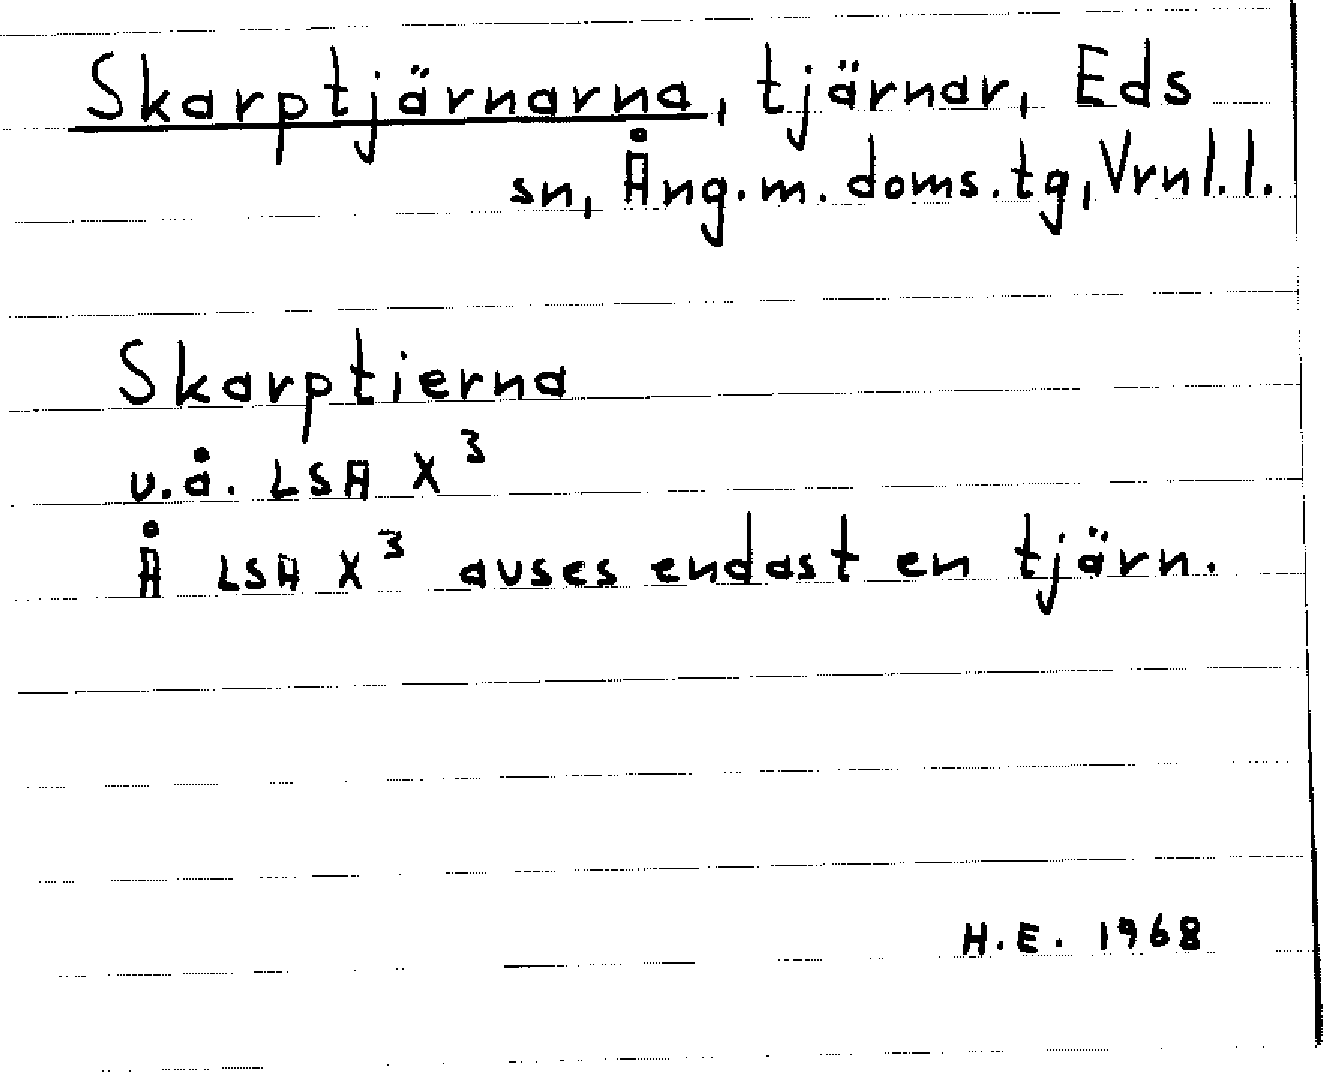 Skarptjärnarna, tjärnar, Eds
sn, Ång.m. doms.tg, Vrnl.l.
Skarptierna
u.å. LSA X³
Å LSA X³ avses endast en tjärn.
H.E. 1968